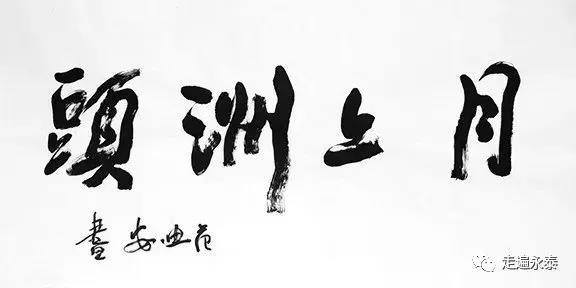 月上洲頭
范迪安書
走遍永泰